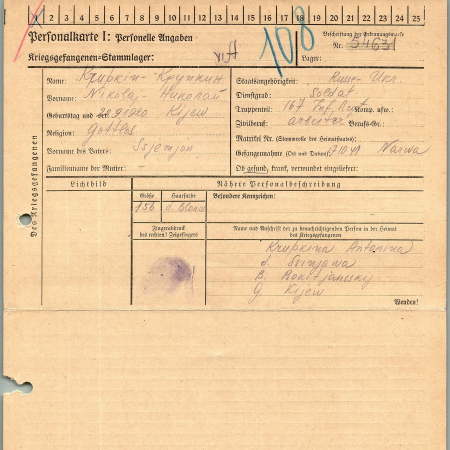 1 2 3 4 5 6 7 8 9 10 11 12 13 14 15 16 17 18 19 20 21 22 23 24 25
Personalkarte I: Personelle Angaben
108
Beschriftung der Erkennungsmarke
Nr. 54631
Kriegsgefangenen=Stammlager:
Lager:
Des Kriegsgefangenen
Name: Krupkin - Крупкин
Vorname: Nikolaj - Николай
Geburtstag und -ort: 20.9.1920 Kijew
Religion: Gottlos
Vorname des Vaters: Ssjemjon
Familienname der Mutter: -
Staatsangehörigkeit: Russe-Ukr.
Dienstgrad: Soldat
Truppenteil: 167 Komp. usw.:
Zivilberuf: arbeiter Berufs-Gr.:
Matrikel Nr. (Stammrolle des Heimatstaates):
Gefangennahme (Ort und Datum): Narwa
Ob gesund, krank, verwundet eingeliefert:
Lichtbild
Nähere Personalbeschreibung
Größe
Haarfarbe
Besondere Kennzeichen:
156
d. blond
Fingerabdruck
des rechten! Zeigefingers
Name und Anschrift der zu benachrichtigenden Person in der Heimat
des Kriegsgefangenen
Krupkina Antonina
d.
B.
G. Kijew
Wenden!